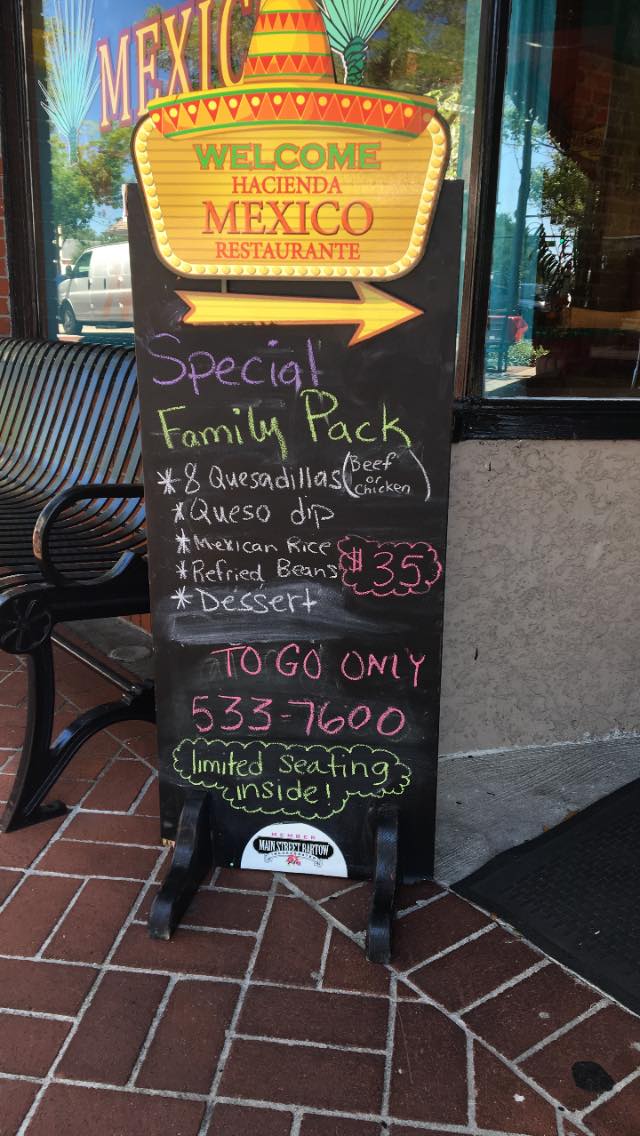 MEXIC
WELCOME
HACIENDA
MEXICO
RESTAURANTE
Special
Family Pack
* 8 Quesadillas (Beef or Chicken)
* Queso dip
* Mexican Rice
* Refried Beans
$35
* Dessert
TO GO ONLY
533-7600
limited seating
inside!
MEMBER
MAIN STREET BARTOW